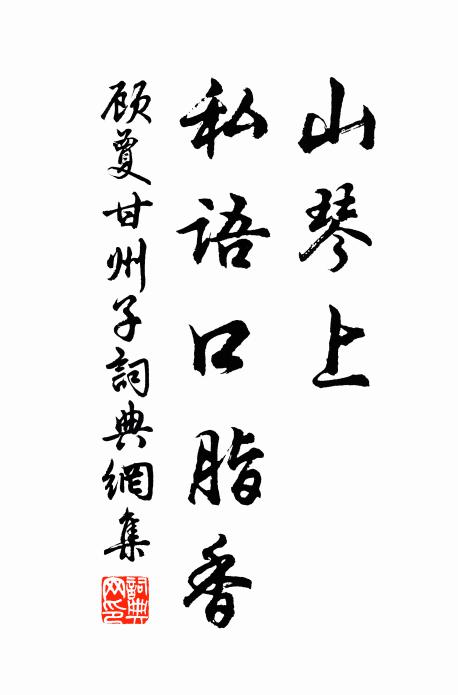 山琴上
私語口脂香
顾夐甘州子詞典網集
詞典
网印